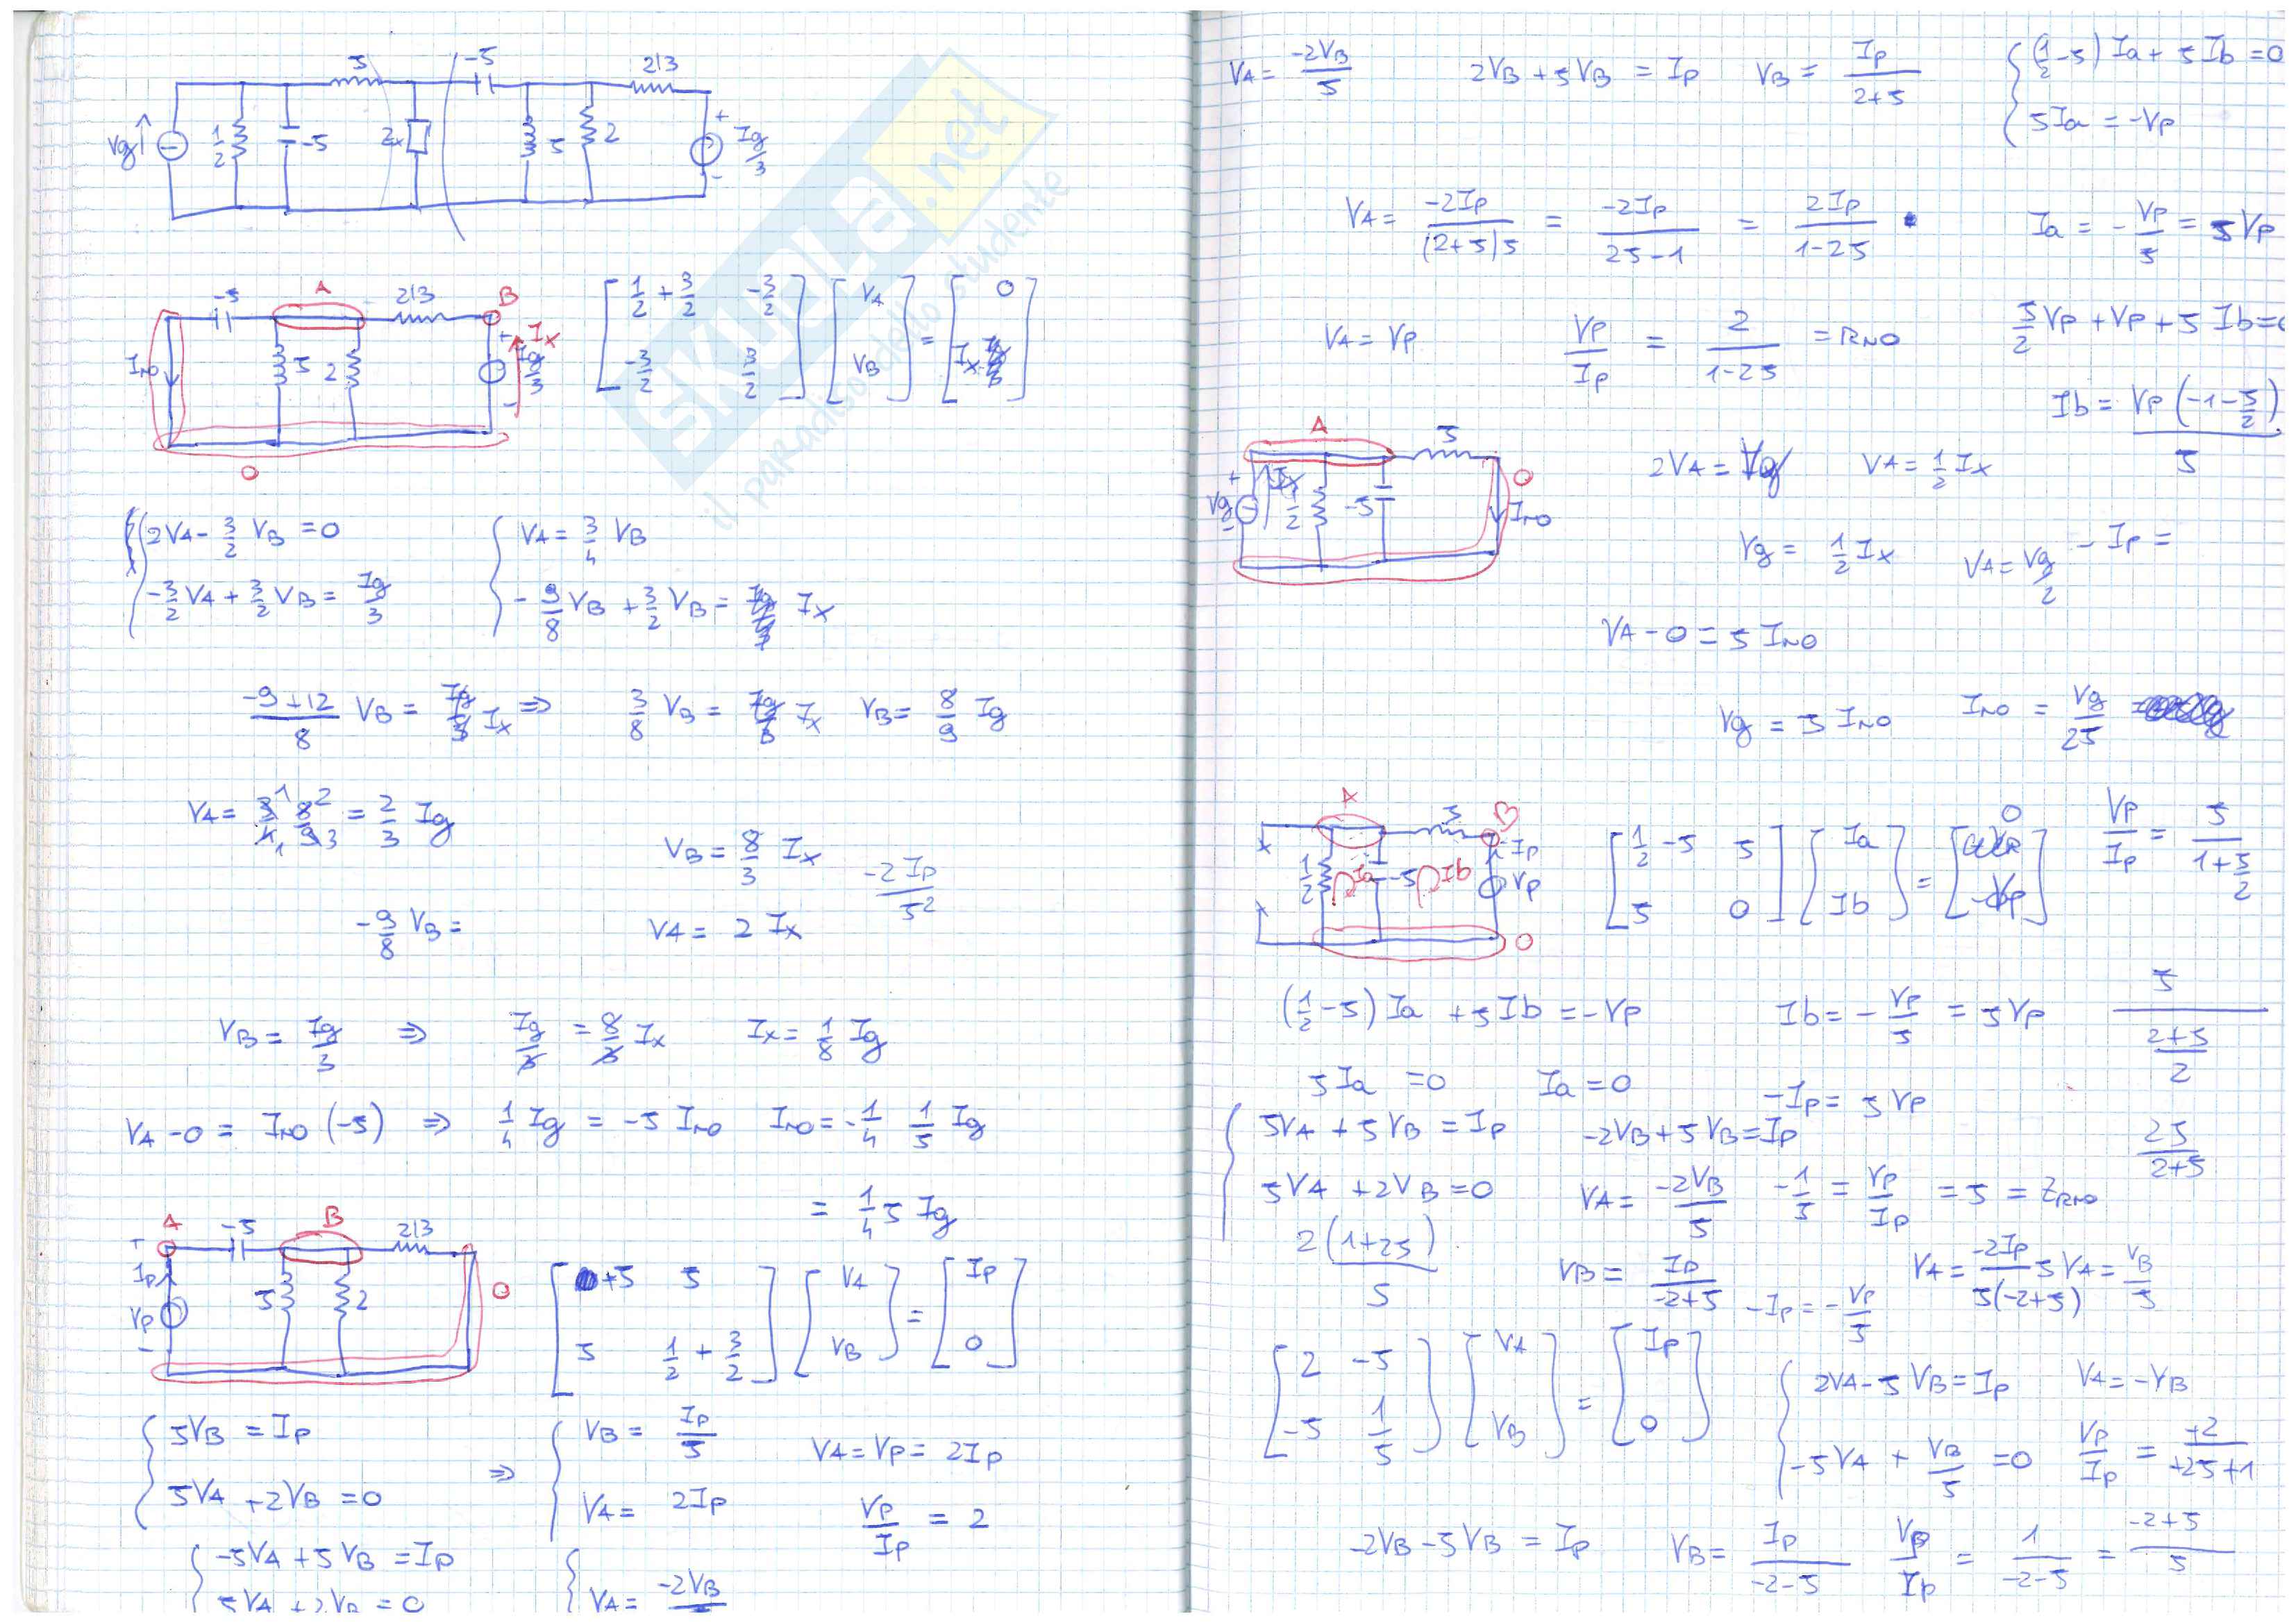 5 -5 2/3
Vg 1/2 -5 2x 5 2 + Ig/3 -
-5 A 2/3 B
INO 5 2 + Ix Ig/3 -
O
[1/2 + 3/2 -3/2] [VA] = [0]
[-3/2 3/2] [VB] [Ix]
2VA - 3/2 VB = 0
-3/2 VA + 3/2 VB = Ig/3
VA = 3/4 VB
-9/8 VB + 3/2 VB = Ix
(-9+12)/8 VB = Ix ⇒ 3/8 VB = Ix VB = 8/9 Ig
VA = 3/4 8/9 = 2/3 Ig
VB = 8/3 Ix -2Ip/5²
-9/8 VB = VA = 2 Ix
VB = Ig/3 ⇒ Ig/3 = 8/3 Ix Ix = 1/8 Ig
VA - 0 = INO (-5) ⇒ 1/4 Ig = -5 INO INO = -1/4 1/5 Ig
= 1/4 5 Ig
A -5 B 2/3
+ Ip Vp - 5 2 O
[+5 5] [VA] = [Ip]
[5 1/2 + 3/2] [VB] [0]
5VB = Ip
5VA + 2VB = 0
⇒ VB = Ip/5 VA = Vp = 2Ip
VA = 2Ip Vp/Ip = 2
-5VA + 5VB = Ip
5VA + 2VB = 0
VA = -2VB
VA = -2VB/5 2VB + 5VB = Ip VB = Ip/(2+5)
(1/2 - 5) Ia + 5 Ib = 0
5Ia = -Vp
VA = -2Ip/((2+5)5) = -2Ip/(25-1) = 2Ip/(1-25) Ia = -Vp/5 = 5Vp
VA = Vp Vp/Ip = 2/(1-25) = RNO 5/2 Vp + Vp + 5 Ib =
Ib = Vp(-1-5/2)/5
A 5
+ Vg - Ix 1/2 -5 O INO
2VA = Vg VA = 1/2 Ix
Vg = 1/2 Ix VA = Vg/2 -Ip =
VA - 0 = 5 INO
Vg = 5 INO INO = Vg/25
A 5
1/2 Ia -5 Ib Ip Vp O
[1/2 - 5 5] [Ia] = [0]
[5 0] [Ib] [-Vp]
Vp/Ip = 5/(1+5/2)
(1/2 - 5) Ia + 5 Ib = -Vp Ib = -Vp/5 = 5Vp 5/((2+5)/2)
5Ia = 0 Ia = 0 -Ip = 5Vp
5VA + 5VB = Ip -2VB + 5VB = Ip 25/(2+5)
5VA + 2VB = 0 VA = -2VB/5 -1/5 = Vp/Ip = 5 = ZRNO
2(1+25)/5 VB = Ip/(-2+5) -Ip = -Vp/5 VA = -2Ip/(5(-2+5)) 5VA = VB/5
[2 -5] [VA] = [Ip]
[-5 1/5] [VB] [0]
2VA - 5VB = Ip VA = -VB
-5VA + VB/5 = 0 Vp/Ip = +2/(+25+1)
-2VB - 5VB = Ip VB = Ip/(-2-5) VB/Ip = 1/(-2-5) = (-2+5)/5
SKUOLA.net
il paradiso dello studente